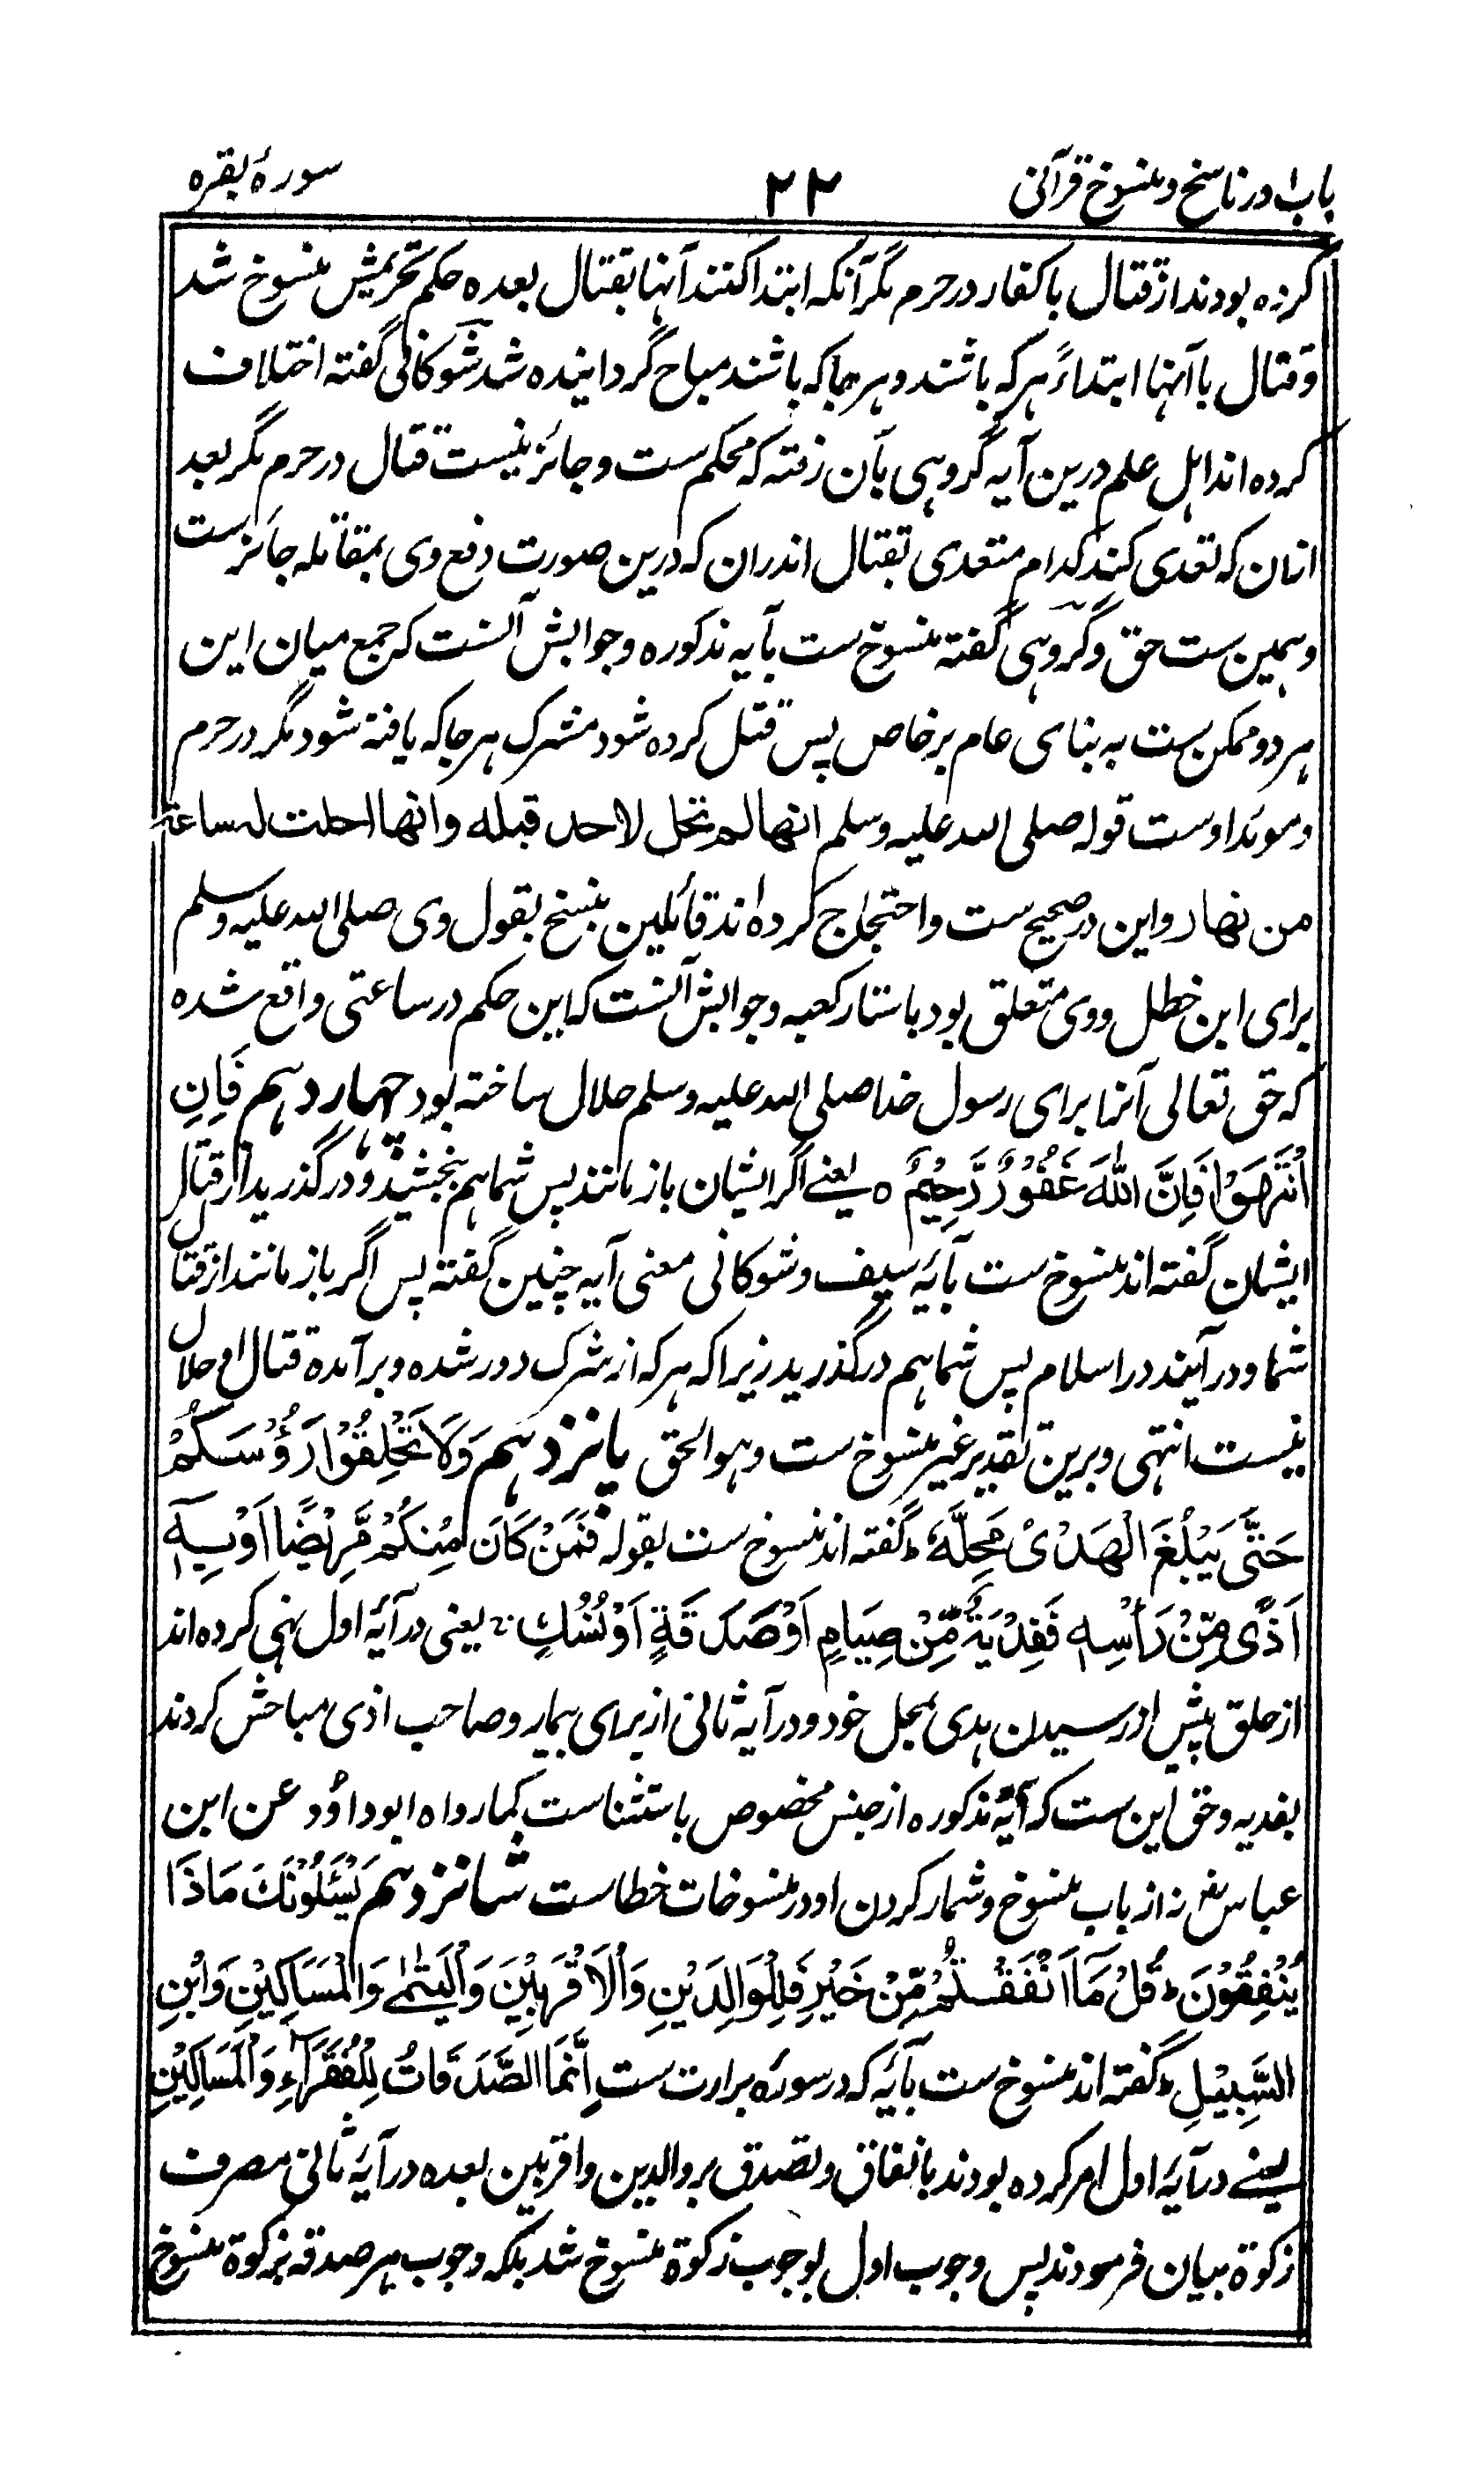 باب ا در ناسخ و منسوخ قرآنی
۲۲
سورۀ بقره
کرده بودند از قتال با کفار در حرم مگر آنکه ابتدا کنند آنها بقتال بعده حکم تحریمش منسوخ شد
و قتال با آنها ابتداءً هر که باشند و هر جا که باشند مباح گردانیده شد شوکانی گفته اختلاف
کرده اند اهل علم درین آیه گروهی بآن رفته که محکم ست و جائز نیست قتال در حرم مگر بعد
ازان که تعدی کند کدام متعدی بقتال اندران که درین صورت دفع وی بمقاتله جائز ست
و همین ست حق و گروهی گفته منسوخ ست بآیه مذکوره و جوابش آنست که جمع میان این
هر دو ممکن ست به بنای عام بر خاص پس قتل کرده شود مشرک هر جا که یافته شود مگر در حرم
و موئد اوست قوله صلی الله علیه وسلم انها لم تحل لاحد قبله وانها احلت له ساعة
من نهار و این در صحیح ست و احتجاج کرده اند قائلین بنسخ بقول وی صلی الله علیه وسلم
برای ابن خطل و وی متعلق بود باستار کعبه و جوابش آنست که این حکم در ساعتی واقع شده
که حق تعالی آنرا برای رسول خدا صلی الله علیه وسلم حلال ساخته بود چهاردهم فَاِنِ
انْتَهَوْا فَاِنَّ اللّٰهَ غَفُوْرٌ رَّحِیْمٌ ه یعنے اگر ایشان باز مانند پس شما هم ببخشید و در گذرید از قتال
ایشان گفته اند منسوخ ست بآیۀ سیف و شوکانی معنی آیه چنین گفته پس اگر باز مانند از قتال
شما و در آیند در اسلام پس شما هم در گذرید زیرا که هر که از شرک دور شده و بر آمده قتال او حلال
نیست انتهی و برین تقدیر غیر منسوخ ست و هو الحق پانزدهم وَلَا تَحْلِقُوْا رُءُوْسَكُمْ
حَتّٰی یَبْلُغَ الْهَدْیُ مَحِلَّهٗ ط گفته اند منسوخ ست بقوله فَمَنْ كَانَ مِنْكُمْ مَّرِیْضًا اَوْ بِهٖۤ
اَذًی مِّنْ رَّاْسِهٖ فَفِدْیَةٌ مِّنْ صِیَامٍ اَوْ صَدَقَةٍ اَوْ نُسُكٍ یعنی در آیۀ اول نهی کرده اند
از حلق پیش از رسیدن هدی بمحل خود و در آیه ثانی از برای بیمار و صاحب اذی مباحش کردند
بفدیه و حق این ست که آیۀ مذکوره از جنس مخصوص باستثناست کما رواه ابوداؤد عن ابن
عباس نه از باب منسوخ و شمار کردن او در منسوخات خطاست شانزدهم یَسْئَلُوْنَكَ مَاذَا
یُنْفِقُوْنَ ط قُلْ مَاۤ اَنْفَقْتُمْ مِّنْ خَیْرٍ فَلِلْوَالِدَیْنِ وَالْاَقْرَبِیْنَ وَالْیَتٰمٰی وَالْمَسَاكِیْنِ وَابْنِ
السَّبِیْلِ ط گفته اند منسوخ ست بآیه که در سورۀ برارت ست اِنَّمَا الصَّدَقَاتُ لِلْفُقَرَآءِ وَالْمَسَاكِیْنِ
یعنے در آیۀ اول امر کرده بودند بانفاق و تصدق بر والدین و اقربین بعده در آیۀ ثانی مصرف
زکوة بیان فرمودند پس وجوب اول بوجوب زکوة منسوخ شد بلکه وجوب هر صدقه بزکوة منسوخ